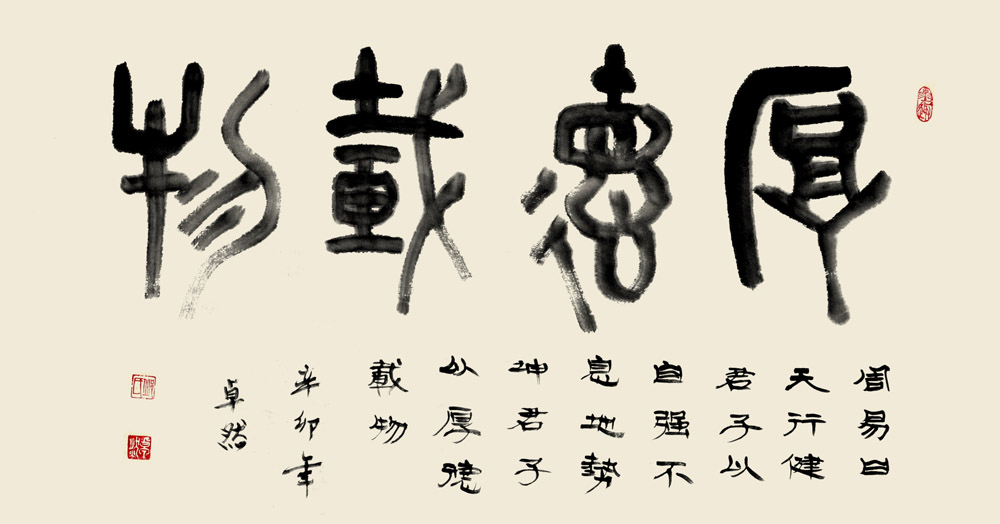 厚德載物
周易曰
天行健
君子以
自強不
息地勢
坤君子
以厚德
載物
辛卯年
卓然